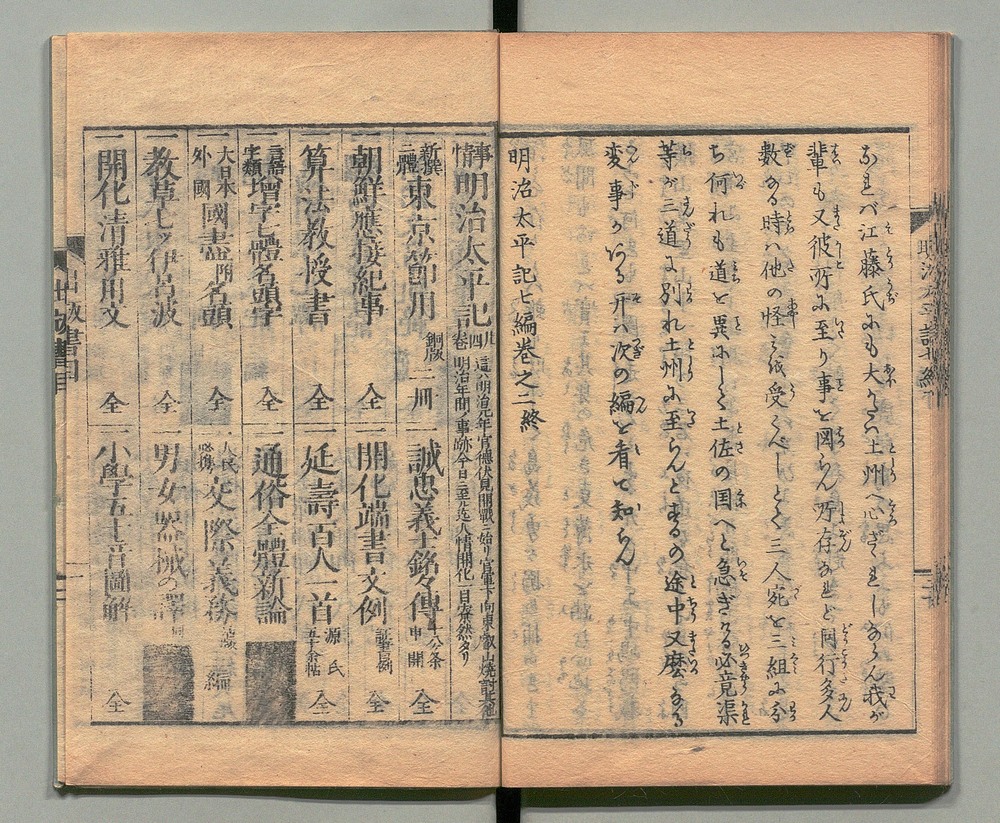 バ江藤氏にも大かたハ土州へ心ざされしならん我が
輩も又彼所に至り事を図らん所存なれど同行多人
数なる時ハ他の怪みを受くべしとて三人宛を三組に分
ち何れも道を異にして土佐の国へと急ぎける必竟渠
等が三道に別れ土州に至らんとするの途中又麽なる
変事かある开ハ次の編を看て知らん
明治太平記七編巻之二終
事情明治太平記
這ハ明治元年
明治年間ノ事跡今日ニ至ル迄人情開化一目案然タリ
一新撰二體東京節用 銅版 二冊
一誠忠義士銘々傳 十八ケ条申開 全
一朝鮮應接紀事 全
一開化端書文例 全
一算法教授書 全
一延壽百人一首 源氏五十余帖 全
一言語字類増字七體名頭字 全
一通俗全體新論
一大日本外國國盡附名頭 全
人民必携交際義務 編
一教草七ツ伊呂波 全
一男女器械の譯
一開化清雅用文 全
一小學五十音圖解 全
出版書目